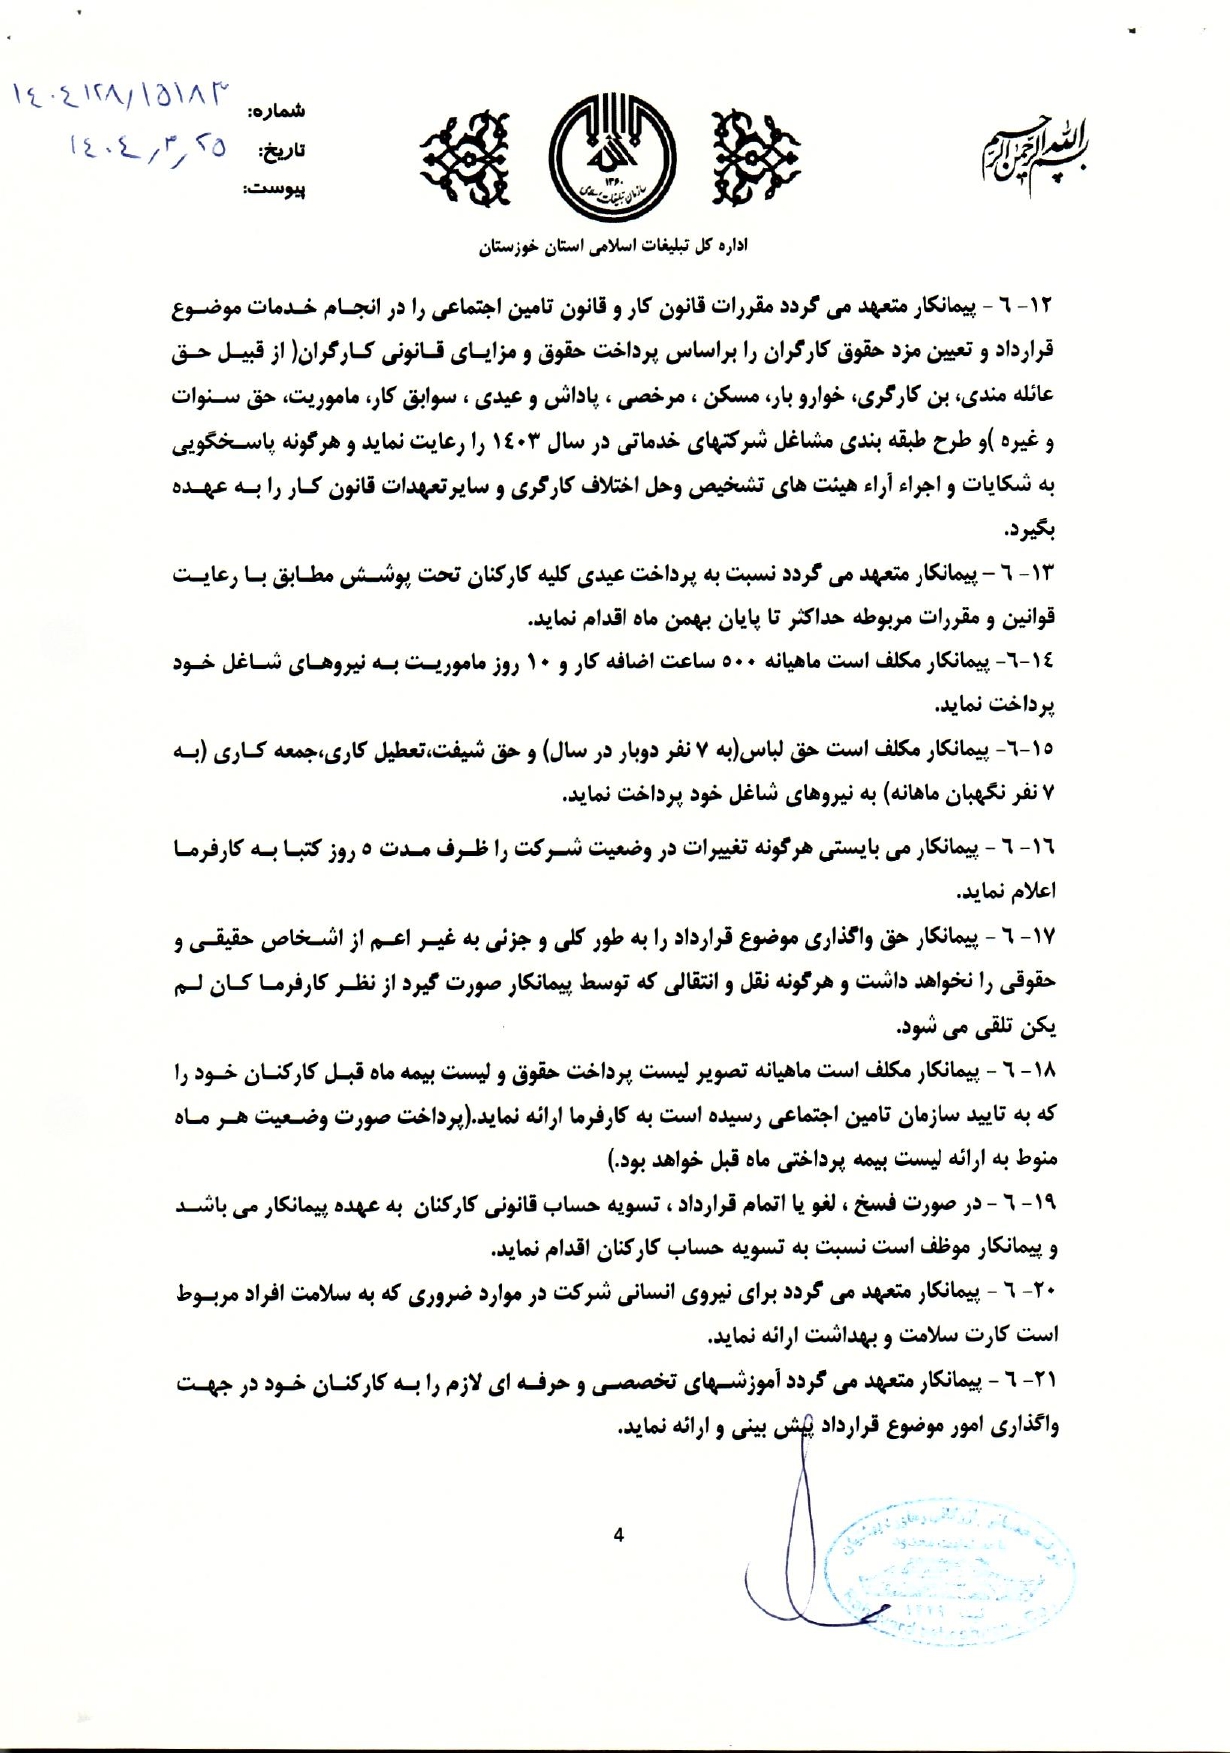 بسم الله الرحمن الرحیم
شماره: ١٤٠٤١٢٨/١٥١٨٣
تاریخ: ١٤٠٤,٣,٢٥
پیوست:
١٣٦٠
سازمان تبلیغات اسلامی
اداره کل تبلیغات اسلامی استان خوزستان
١٢- ٦ - پیمانکار متعهد می گردد مقررات قانون کار و قانون تامین اجتماعی را در انجام خدمات موضوع
قرارداد و تعیین مزد حقوق کارگران را براساس پرداخت حقوق و مزایای قانونی کارگران( از قبیل حق
عائله مندی، بن کارگری، خوارو بار، مسکن ، مرخصی ، پاداش و عیدی ، سوابق کار، ماموریت، حق سنوات
و غیره )و طرح طبقه بندی مشاغل شرکتهای خدماتی در سال ١٤٠٣ را رعایت نماید و هرگونه پاسخگویی
به شکایات و اجراء آراء هیئت های تشخیص وحل اختلاف کارگری و سایرتعهدات قانون کار را به عهده
بگیرد.
١٣- ٦ – پیمانکار متعهد می گردد نسبت به پرداخت عیدی کلیه کارکنان تحت پوشش مطابق با رعایت
قوانین و مقررات مربوطه حداکثر تا پایان بهمن ماه اقدام نماید.
١٤-٦- پیمانکار مکلف است ماهیانه ٥٠٠ ساعت اضافه کار و ١٠ روز ماموریت به نیروهای شاغل خود
پرداخت نماید.
١٥-٦- پیمانکار مکلف است حق لباس(به ٧ نفر دوبار در سال) و حق شیفت،تعطیل کاری،جمعه کاری (به
٧ نفر نگهبان ماهانه) به نیروهای شاغل خود پرداخت نماید.
١٦- ٦ - پیمانکار می بایستی هرگونه تغییرات در وضعیت شرکت را ظرف مدت ٥ روز کتبا به کارفرما
اعلام نماید.
١٧- ٦ - پیمانکار حق واگذاری موضوع قرارداد را به طور کلی و جزئی به غیر اعم از اشخاص حقیقی و
حقوقی را نخواهد داشت و هرگونه نقل و انتقالی که توسط پیمانکار صورت گیرد از نظر کارفرما کان لم
یکن تلقی می شود.
١٨- ٦ - پیمانکار مکلف است ماهیانه تصویر لیست پرداخت حقوق و لیست بیمه ماه قبل کارکنان خود را
که به تایید سازمان تامین اجتماعی رسیده است به کارفرما ارائه نماید.(پرداخت صورت وضعیت هر ماه
منوط به ارائه لیست بیمه پرداختی ماه قبل خواهد بود.)
١٩- ٦ - در صورت فسخ ، لغو یا اتمام قرارداد ، تسویه حساب قانونی کارکنان به عهده پیمانکار می باشد
و پیمانکار موظف است نسبت به تسویه حساب کارکنان اقدام نماید.
٢٠- ٦ - پیمانکار متعهد می گردد برای نیروی انسانی شرکت در موارد ضروری که به سلامت افراد مربوط
است کارت سلامت و بهداشت ارائه نماید.
٢١- ٦ - پیمانکار متعهد می گردد آموزشهای تخصصی و حرفه ای لازم را به کارکنان خود در جهت
واگذاری امور موضوع قرارداد پیش بینی و ارائه نماید.
4